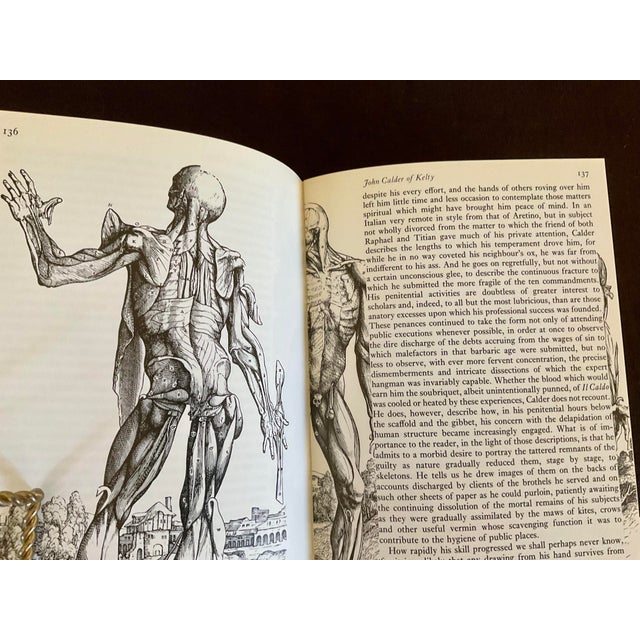 136
John Calder of Kelty
137
despite his every effort, and the hands of others roving over him
left him little time and less occasion to contemplate those matters
spiritual which might have brought him peace of mind. In an
Italian very remote in style from that of Aretino, but in subject
not wholly divorced from the matter to which the friend of both
Raphael and Titian gave much of his private attention, Calder
describes the lengths to which his temperament drove him, for
while he in no way coveted his neighbour's ox, he was far from
indifferent to his ass. And he goes on regretfully, but not without
a certain unconscious glee, to describe the continuous fracture to
which he submitted the more fragile of the ten commandments.
His penitential activities are doubtless of greater interest to
scholars and, indeed, to all but the most lubricious, than are those
anatory excesses upon which his professional success was founded.
These penances continued to take the form not only of attending
public executions whenever possible, in order at once to observe
the dire discharge of the debts accruing from the wages of sin to
which malefactors in that barbaric age were submitted, but no
less to observe, with ever more fervent concentration, the precise
dismemberments and intricate dissections of which the expert
hangman was invariably capable. Whether the blood which would
earn him the soubriquet, albeit unintentionally punned, of Il Caldo
was cooled or heated by these experiences, Calder does not recount.
He does, however, describe how, in his penitential hours below
the scaffold and the gibbet, his concern with the delapidation of
human structure became increasingly engaged. What is of im-
portance to the reader, in the light of those descriptions, is that he
admits to a morbid desire to portray the tattered remnants of the
guilty as nature gradually reduced them, stage by stage, to
skeletons. He tells us he drew images of them on the backs of
accounts discharged by clients of the brothels he served and on
such other sheets of paper as he could purloin, patiently awaiting
the continuing dissolution of the mortal remains of his subjects
as they were gradually assimilated by the maws of kites, crows
and other useful vermin whose scavenging function it was to
contribute to the hygiene of public places.
How rapidly his skill progressed we shall perhaps never know,
that any drawing from his hand survives from